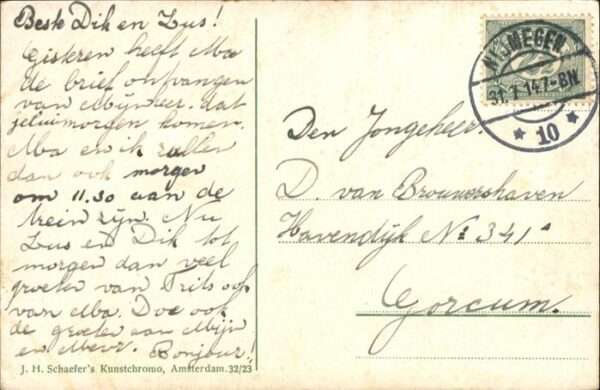 Beste Dik en Zus!
Gisteren heeft Ma
de brief ontvangen
van Mijnheer. dat
jelui morgen komen.
Ma en ik zullen
dan ook morgen
om 11.30 aan de
trein zijn. Nu
Zus en Dik tot
morgen dan veel
groeten van Frits ook
van Ma. Doe ook
de groeten aan Mijn
en Mevr. Bonjour!
J. H. Schaefer's Kunstchromo, Amsterdam. 32/23
NIJMEGEN
31.7.14 7-8N
10
Den Jongeheer
D. van Brouwershaven
Havendijk No 341a
Gorcum.